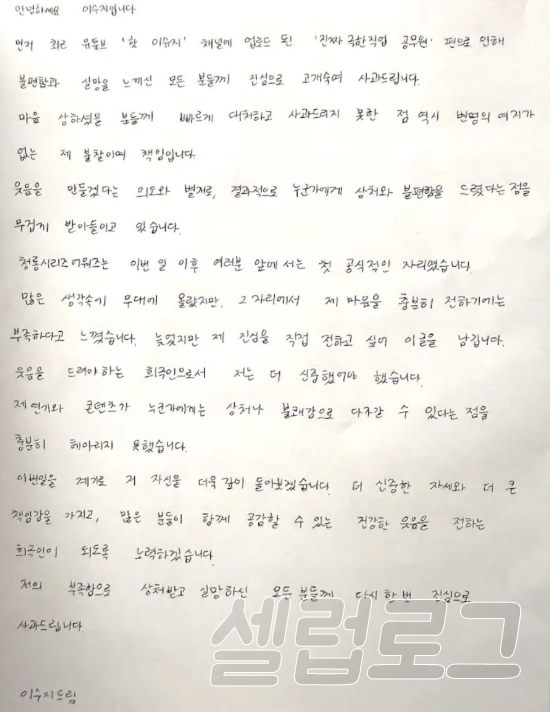 안녕하세요 이수지입니다
먼저 최근 유튜브 '핫 이슈지' 채널에 업로드 된 '진짜 극한직업 공무원' 편으로 인해
불편함과 실망을 느끼신 모든 분들께 진심으로 고개숙여 사과드립니다.
마음 상하셨을 분들께 빠르게 대처하고 사과드리지 못한 점 역시 변명의 여지가
없는 제 불찰이며 책임입니다.
웃음을 만들겠다는 의도와 별개로, 결과적으로 누군가에게 상처와 불편함을 드렸다는 점을
무겁게 받아들이고 있습니다.
청룡시리즈어워즈는 이번 일 이후 여러분 앞에 서는 첫 공식적인 자리였습니다.
많은 생각속에 무대에 올랐지만, 그 자리에서 제 마음을 충분히 전하기에는
부족하다고 느꼈습니다. 늦었지만 제 진심을 직접 전하고 싶어 이글을 남깁니다.
웃음을 드려야하는 희극인으로서 저는 더 신중했어야 했습니다.
제 연기와 콘텐츠가 누군가에게는 상처나 불쾌감으로 다가갈 수 있다는 점을
충분히 헤아리지 못했습니다.
이번일을 계기로 저 자신을 더욱 깊이 돌아보겠습니다. 더 신중한 자세와 더 큰
책임감을 가지고, 많은 분들이 함께 공감할 수 있는 건강한 웃음을 전하는
희극인이 되도록 노력하겠습니다.
저의 부족함으로 상처받고 실망하신 모든 분들께 다시 한 번 진심으로
사과드립니다.
셀럽로그
이수지드림